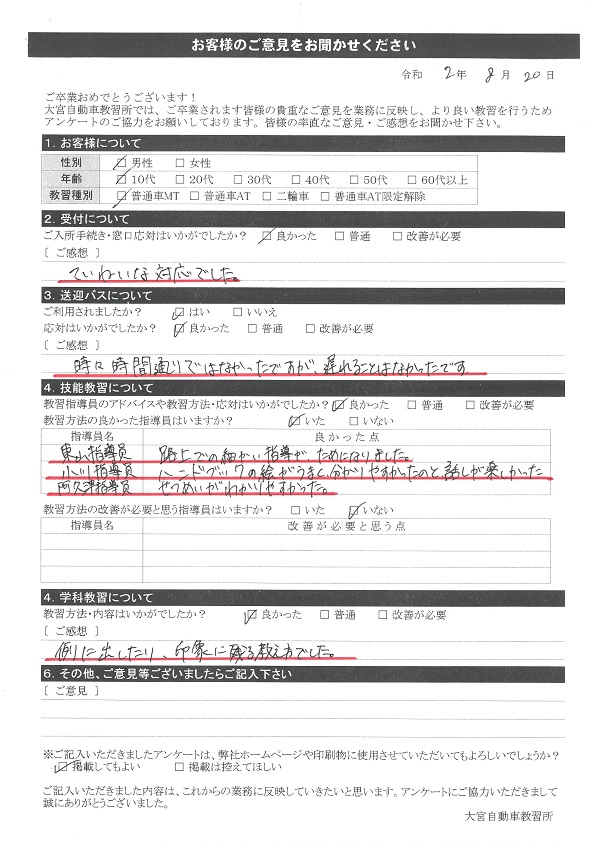 お客様のご意見をお聞かせください
令和 2年 8月 20日
ご卒業おめでとうございます!
大宮自動車教習所では、ご卒業されます皆様の貴重なご意見を業務に反映し、より良い教習を行うため
アンケートのご協力をお願いしております。皆様の率直なご意見・ご感想をお聞かせ下さい。
1. お客様について
性別 ☑ 男性 □ 女性
年齢 ☑ 10代 □ 20代 □ 30代 □ 40代 □ 50代 □ 60代以上
教習種別 ☑ 普通車MT □ 普通車AT □ 二輪車 □ 普通車AT限定解除
2. 受付について
ご入所手続き・窓口応対はいかがでしたか? ☑ 良かった □ 普通 □ 改善が必要
[ ご感想 ]
ていねいな対応でした。
3. 送迎バスについて
ご利用されましたか? ☑ はい □ いいえ
応対はいかがでしたか? ☑ 良かった □ 普通 □ 改善が必要
[ ご感想 ]
時々時間通りではなかったですが、遅れることはなかったです
4. 技能教習について
教習指導員のアドバイスや教習方法・応対はいかがでしたか? ☑ 良かった □ 普通 □ 改善が必要
教習方法の良かった指導員はいますか? ☑ いた □ いない
指導員名 良かった点
東山指導員 路上での細かい指導が、ためになりました。
小川指導員 ハンドブックの絵がうまく、分かりやすかったのと話しが楽しかった
阿久津指導員 せつめいがわかりやすかった。
教習方法の改善が必要と思う指導員はいますか? □ いた ☑ いない
指導員名 改善が必要と思う点
4. 学科教習について
教習方法・内容はいかがでしたか? ☑ 良かった □ 普通 □ 改善が必要
[ ご感想 ]
例に出したり、印象に残る教え方でした。
6. その他、ご意見等ございましたらご記入下さい
[ ご意見 ]
※ご記入いただきましたアンケートは、弊社ホームページや印刷物に使用させていただいてもよろしいでしょうか?
☑ 掲載してもよい □ 掲載は控えてほしい
ご記入いただきました内容は、これからの業務に反映していきたいと思います。アンケートにご協力いただきまして
誠にありがとうございました。
大宮自動車教習所